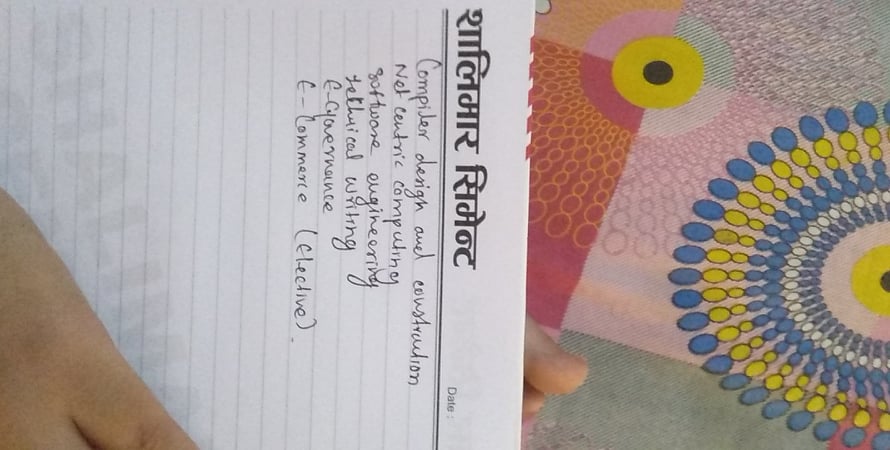 शालिमार सिमेन्ट
Date :
Compiler design and construction
Net centric computing
software engineering
technical writing
E-Governance
E-Commerce (Elective).